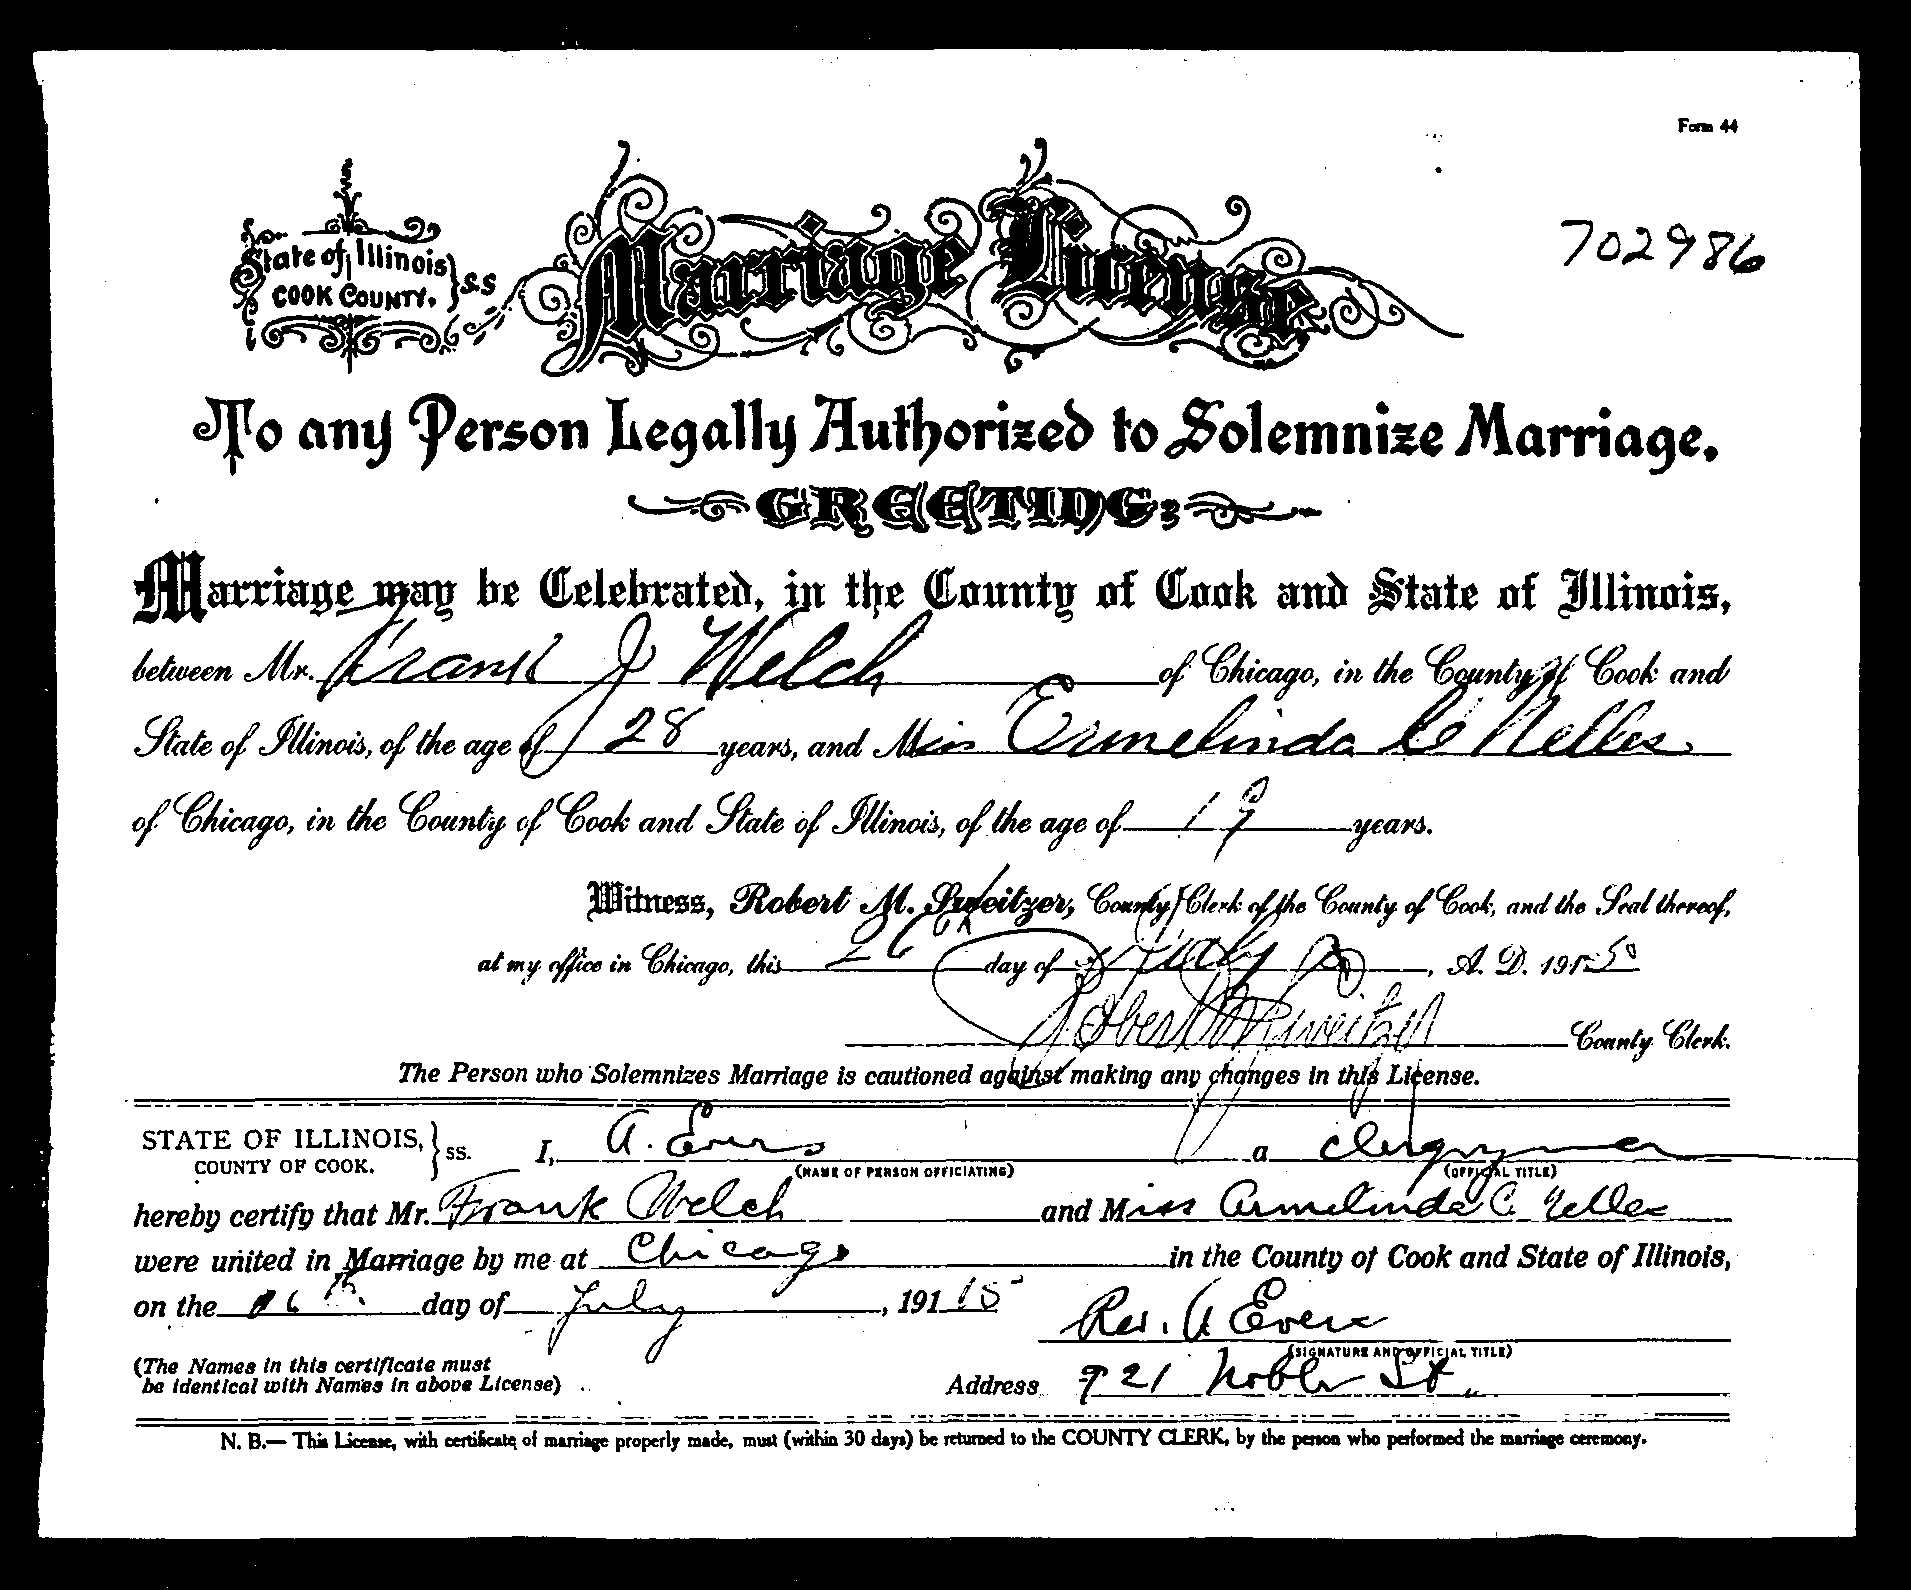 Form 44
State of Illinois } S.S
COOK COUNTY.
Marriage License
702986
To any Person Legally Authorized to Solemnize Marriage.
GREETING:
Marriage may be Celebrated, in the County of Cook and State of Illinois,
between Mr. Frank J Welch of Chicago, in the County of Cook and
State of Illinois, of the age of 28 years, and Miss Ermelinda C Nelles
of Chicago, in the County of Cook and State of Illinois, of the age of 19 years.
Witness, Robert M. Sweitzer, County Clerk of the County of Cook, and the Seal thereof,
at my office in Chicago, this 26th day of July A. D. 191
Robert M Sweitzer County Clerk.
The Person who Solemnizes Marriage is cautioned against making any changes in this License.
STATE OF ILLINOIS, } ss. I, A. Evers a Clergyman
COUNTY OF COOK. (NAME OF PERSON OFFICIATING) (OFFICIAL TITLE)
hereby certify that Mr. Frank Welch and Miss Ermelinda C. Nelles
were united in Marriage by me at Chicago in the County of Cook and State of Illinois,
on the day of July, 191 15
Rev. A Evers
(SIGNATURE AND OFFICIAL TITLE)
(The Names in this certificate must
be identical with Names in above License)
Address 921 Noble St.
N. B.— This License, with certificate of marriage properly made, must (within 30 days) be returned to the COUNTY CLERK, by the person who performed the marriage ceremony.